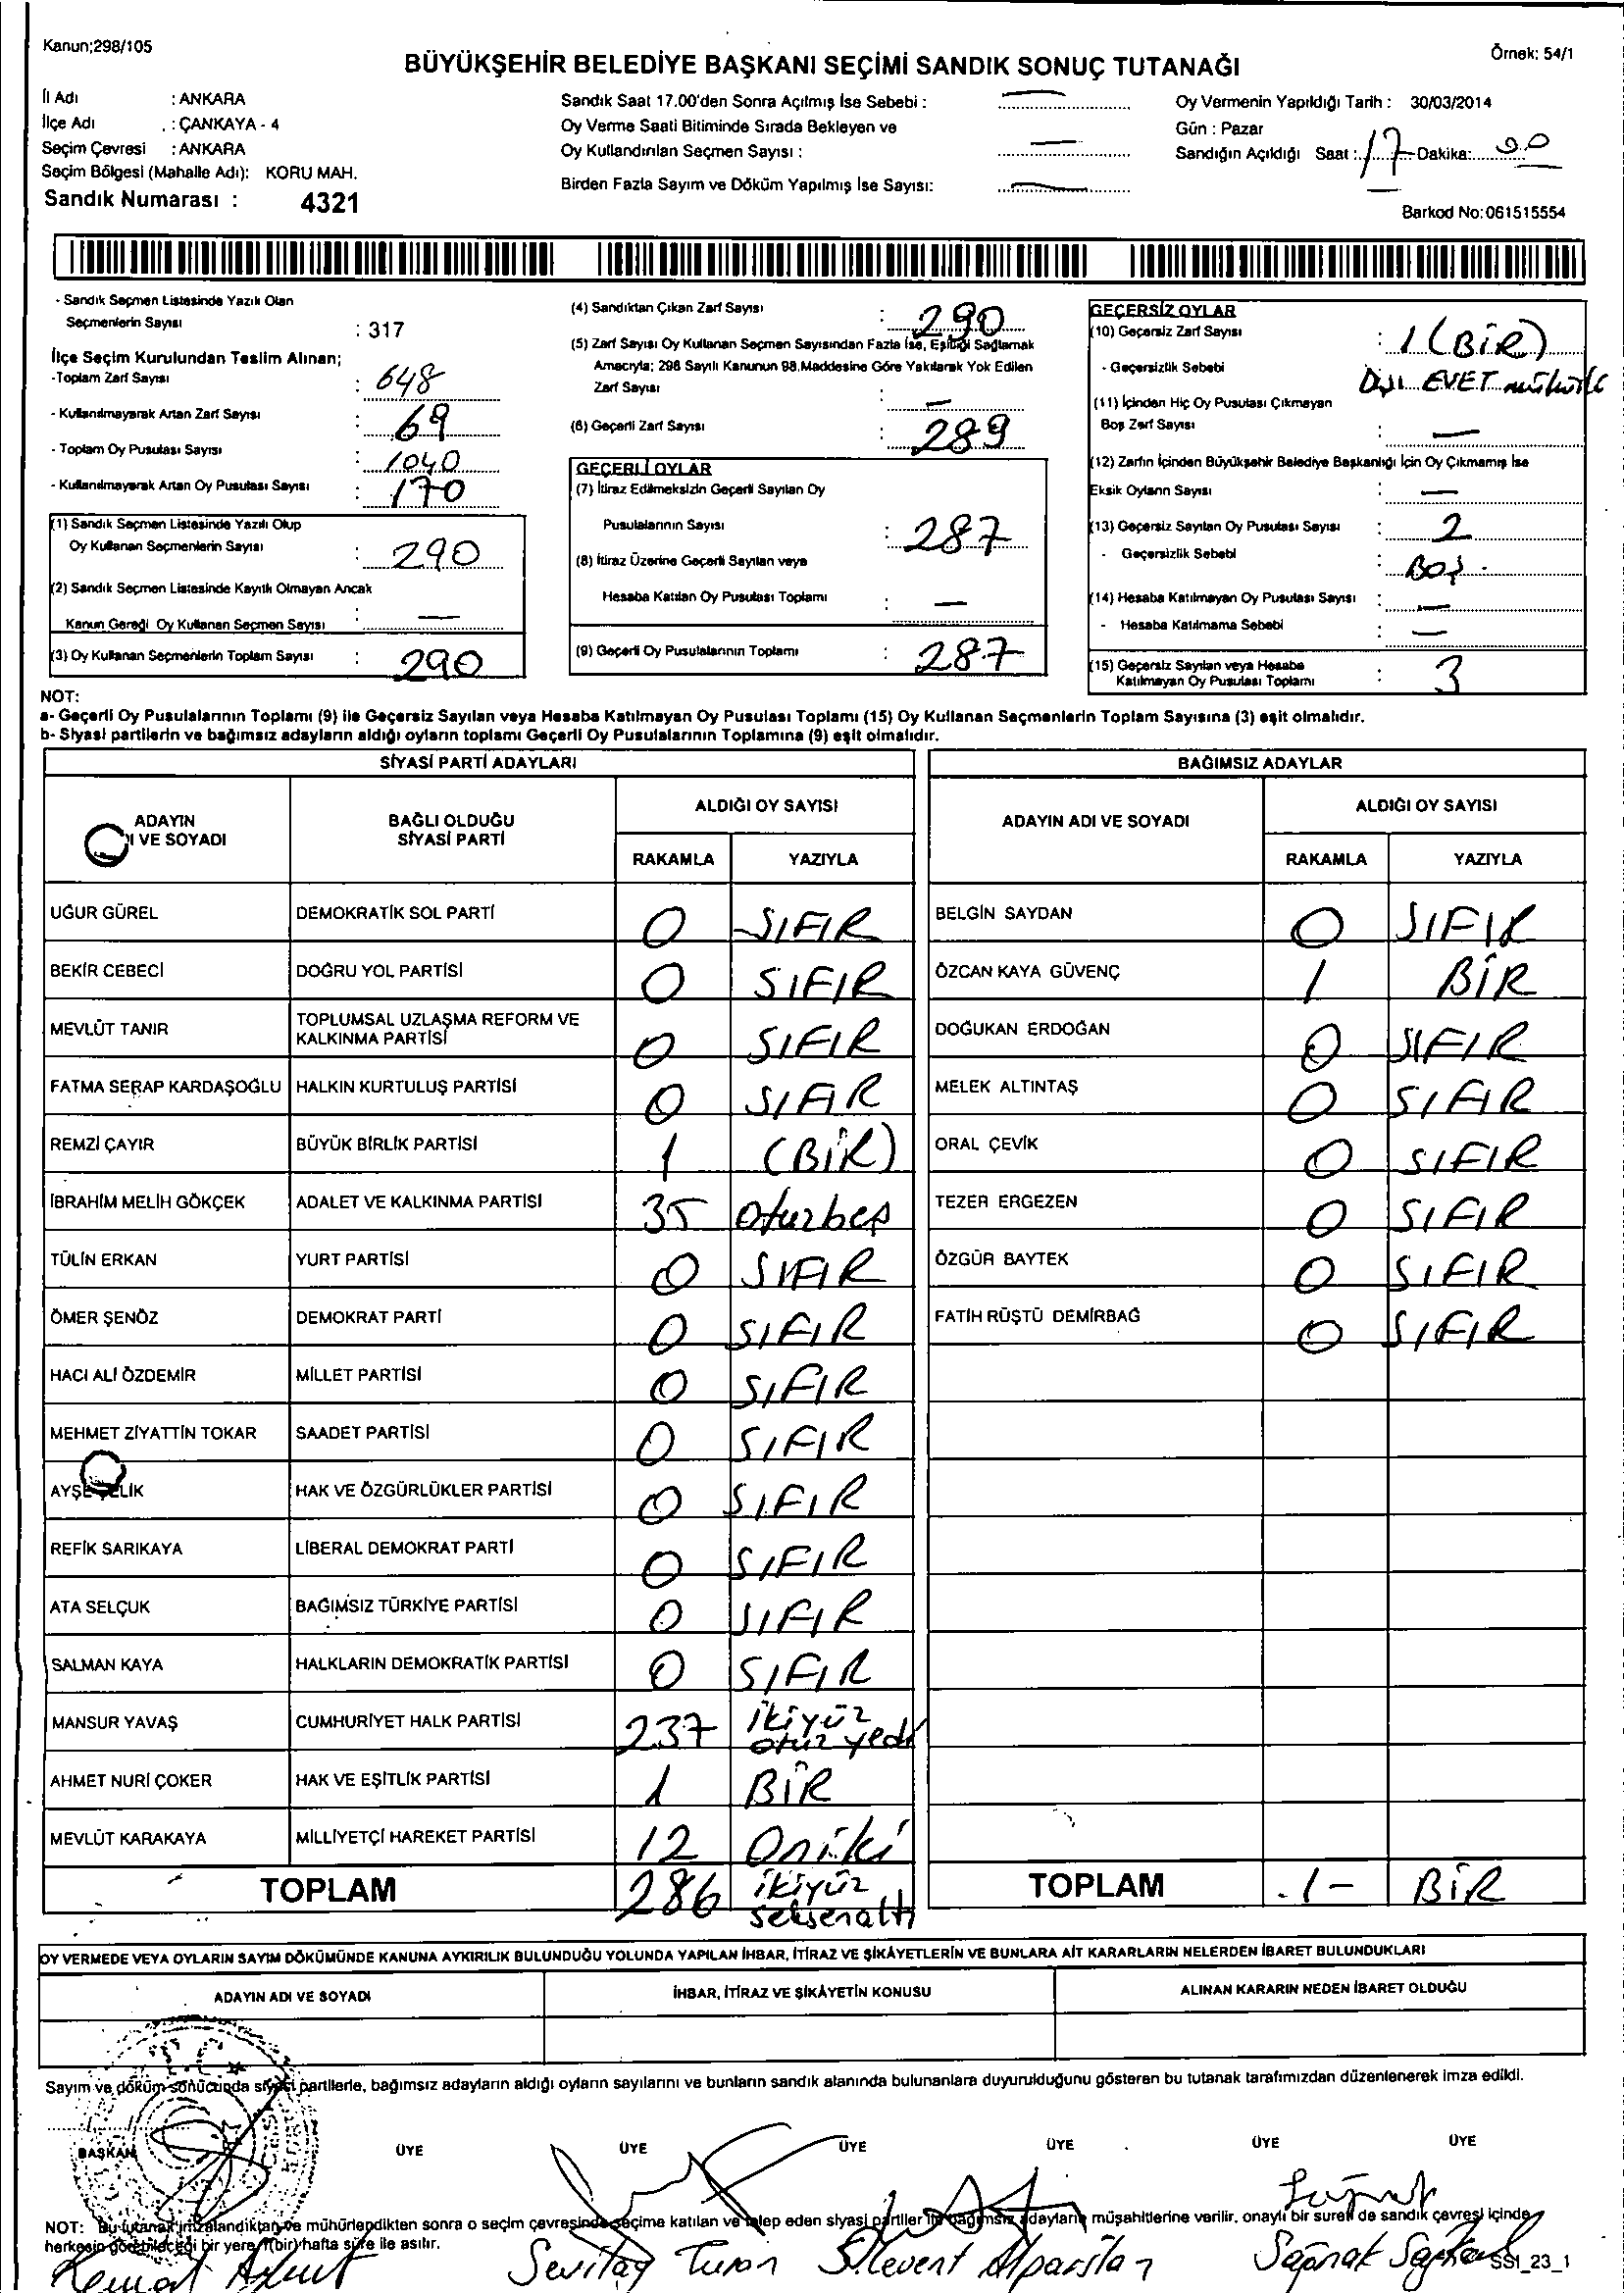 Kanun;298/105
Örnek: 54/1
BÜYÜKŞEHİR BELEDİYE BAŞKANI SEÇİMİ SANDIK SONUÇ TUTANAĞI
İl Adı : ANKARA
İlçe Adı . : ÇANKAYA - 4
Seçim Çevresi : ANKARA
Seçim Bölgesi (Mahalle Adı): KORU MAH.
Sandık Numarası : 4321
Sandık Saat 17.00'den Sonra Açılmış İse Sebebi : —
Oy Verme Saati Bitiminde Sırada Bekleyen ve
Oy Kullandırılan Seçmen Sayısı : —
Birden Fazla Sayım ve Döküm Yapılmış İse Sayısı: —
Oy Vermenin Yapıldığı Tarih : 30/03/2014
Gün : Pazar
Sandığın Açıldığı Saat : 17 Dakika: 00
Barkod No:061515554
- Sandık Seçmen Listesinde Yazılı Olan
Seçmenlerin Sayısı : 317
İlçe Seçim Kurulundan Teslim Alınan;
-Toplam Zarf Sayısı : 648
- Kullanılmayarak Artan Zarf Sayısı : 69
- Toplam Oy Pusulası Sayısı : 1040
- Kullanılmayarak Artan Oy Pusulası Sayısı : 170
(1) Sandık Seçmen Listesinde Yazılı Olup
Oy Kullanan Seçmenlerin Sayısı : 290
(2) Sandık Seçmen Listesinde Kayıtlı Olmayan Ancak
Kanun Gereği Oy Kullanan Seçmen Sayısı : —
(3) Oy Kullanan Seçmenlerin Toplam Sayısı : 290
(4) Sandıktan Çıkan Zarf Sayısı : 290
(5) Zarf Sayısı Oy Kullanan Seçmen Sayısından Fazla İse, Eşitliği Sağlamak
Amacıyla; 298 Sayılı Kanunun 98.Maddesine Göre Yakılarak Yok Edilen
Zarf Sayısı : —
(6) Geçerli Zarf Sayısı : 289
GEÇERLİ OYLAR
(7) İtiraz Edilmeksizin Geçerli Sayılan Oy
Pusulalarının Sayısı : 287
(8) İtiraz Üzerine Geçerli Sayılan veya
Hesaba Katılan Oy Pusulası Toplamı : —
(9) Geçerli Oy Pusulalarının Toplamı : 287
GEÇERSİZ OYLAR
(10) Geçersiz Zarf Sayısı : 1 (BİR)
- Geçersizlik Sebebi Dışı EVET mühürlü
(11) İçinden Hiç Oy Pusulası Çıkmayan
Boş Zarf Sayısı : —
(12) Zarfın İçinden Büyükşehir Belediye Başkanlığı İçin Oy Çıkmamış İse
Eksik Oyların Sayısı : —
(13) Geçersiz Sayılan Oy Pusulası Sayısı : 2
- Geçersizlik Sebebi : BOŞ.
(14) Hesaba Katılmayan Oy Pusulası Sayısı : —
- Hesaba Katılmama Sebebi : —
(15) Geçersiz Sayılan veya Hesaba
Katılmayan Oy Pusulası Toplamı : 3
NOT:
a- Geçerli Oy Pusulalarının Toplamı (9) ile Geçersiz Sayılan veya Hesaba Katılmayan Oy Pusulası Toplamı (15) Oy Kullanan Seçmenlerin Toplam Sayısına (3) eşit olmalıdır.
b- Siyasi partilerin ve bağımsız adayların aldığı oyların toplamı Geçerli Oy Pusulalarının Toplamına (9) eşit olmalıdır.
SİYASİ PARTİ ADAYLARI
ADAYIN
I VE SOYADI
BAĞLI OLDUĞU
SİYASİ PARTİ
ALDIĞI OY SAYISI
RAKAMLA YAZIYLA
UĞUR GÜREL DEMOKRATİK SOL PARTİ 0 SIFIR
BEKİR CEBECİ DOĞRU YOL PARTİSİ 0 SIFIR
MEVLÜT TANIR TOPLUMSAL UZLAŞMA REFORM VE
KALKINMA PARTİSİ 0 SIFIR
FATMA SERAP KARDAŞOĞLU HALKIN KURTULUŞ PARTİSİ 0 SIFIR
REMZİ ÇAYIR BÜYÜK BİRLİK PARTİSİ 1 (BİR)
İBRAHİM MELİH GÖKÇEK ADALET VE KALKINMA PARTİSİ 35 Oturbeş
TÜLİN ERKAN YURT PARTİSİ 0 SIFIR
ÖMER ŞENÖZ DEMOKRAT PARTİ 0 SIFIR
HACI ALİ ÖZDEMİR MİLLET PARTİSİ 0 SIFIR
MEHMET ZİYATTİN TOKAR SAADET PARTİSİ 0 SIFIR
AYŞE ÇELİK HAK VE ÖZGÜRLÜKLER PARTİSİ 0 SIFIR
REFİK SARIKAYA LİBERAL DEMOKRAT PARTİ 0 SIFIR
ATA SELÇUK BAĞIMSIZ TÜRKİYE PARTİSİ 0 SIFIR
SALMAN KAYA HALKLARIN DEMOKRATİK PARTİSİ 0 SIFIR
MANSUR YAVAŞ CUMHURİYET HALK PARTİSİ 237 ikiyüz
otuz yedi
AHMET NURİ ÇOKER HAK VE EŞİTLİK PARTİSİ 1 BİR
MEVLÜT KARAKAYA MİLLİYETÇİ HAREKET PARTİSİ 12 Oniki
TOPLAM 286 ikiyüz
seksenaltı
BAĞIMSIZ ADAYLAR
ADAYIN ADI VE SOYADI
ALDIĞI OY SAYISI
RAKAMLA YAZIYLA
BELGİN SAYDAN 0 SIFIR
ÖZCAN KAYA GÜVENÇ 1 BİR
DOĞUKAN ERDOĞAN 0 SIFIR
MELEK ALTINTAŞ 0 SIFIR
ORAL ÇEVİK 0 SIFIR
TEZER ERGEZEN 0 SIFIR
ÖZGÜR BAYTEK 0 SIFIR
FATİH RÜŞTÜ DEMİRBAĞ 0 SIFIR
TOPLAM .1- BİR
OY VERMEDE VEYA OYLARIN SAYIM DÖKÜMÜNDE KANUNA AYKIRILIK BULUNDUĞU YOLUNDA YAPILAN İHBAR, İTİRAZ VE ŞİKÂYETLERİN VE BUNLARA AİT KARARLARIN NELERDEN İBARET BULUNDUKLARI
ADAYIN ADI VE SOYADI İHBAR, İTİRAZ VE ŞİKÂYETİN KONUSU ALINAN KARARIN NEDEN İBARET OLDUĞU
Sayım ve döküm sonucunda siyasi partilerle, bağımsız adayların aldığı oyların sayılarını ve bunların sandık alanında bulunanlara duyurulduğunu gösteren bu tutanak tarafımızdan düzenlenerek imza edildi.
BAŞKAN ÜYE ÜYE ÜYE ÜYE ÜYE ÜYE
NOT: Bu tutanak imzalandıktan ve mühürlendikten sonra o seçim çevresinde seçime katılan ve talep eden siyasi partiler ile bağımsız adayların müşahitlerine verilir, onaylı bir sureti de sandık çevresi içinde
herkesin görebileceği bir yere 1(bir) hafta süre ile asılır.
Kemal Sevilay Turan Levent Alparslan
SS1_23_1